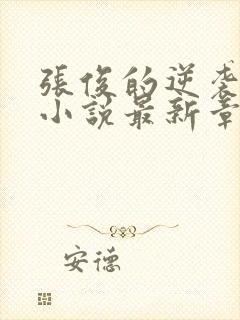 張俊的逆袭
小說最新章
安德